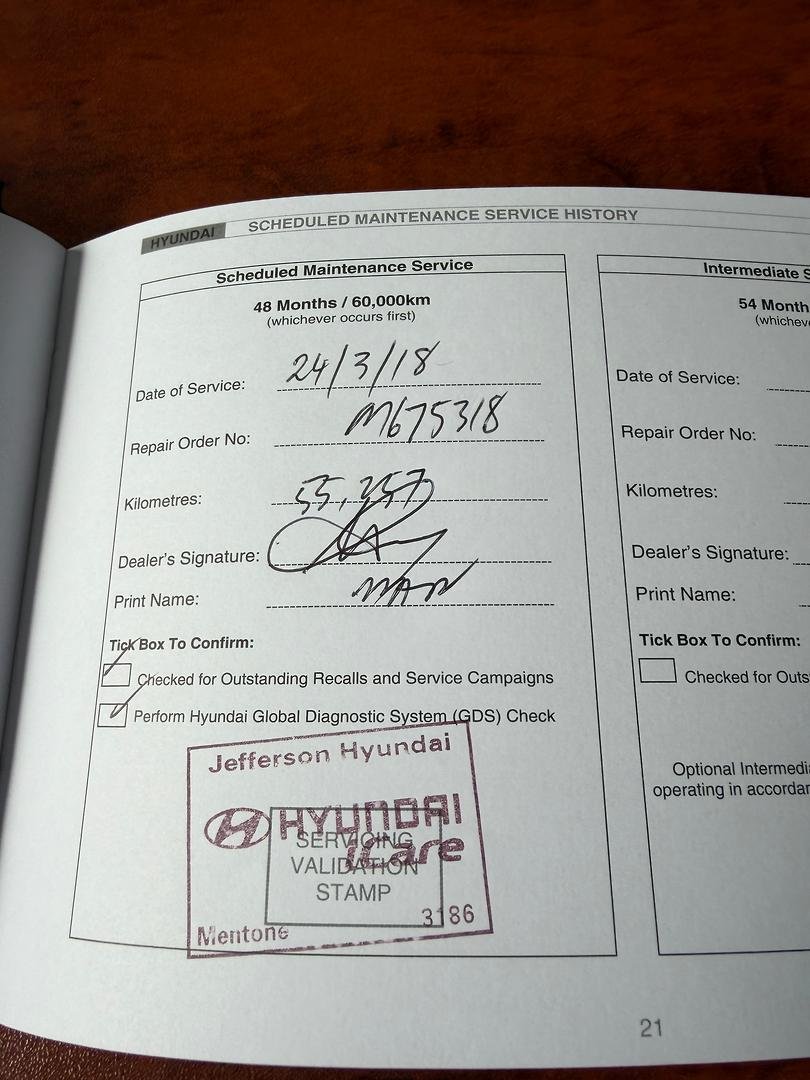 HYUNDAI SCHEDULED MAINTENANCE SERVICE HISTORY
Scheduled Maintenance Service
48 Months / 60,000km
(whichever occurs first)
Date of Service: 24/3/18
Repair Order No: M675318
Kilometres: 55,257
Dealer's Signature:
Print Name:
Tick Box To Confirm:
Checked for Outstanding Recalls and Service Campaigns
Perform Hyundai Global Diagnostic System (GDS) Check
Jefferson Hyundai
HYUNDAI
iCare
SERVICING
VALIDATION
STAMP
Mentone 3186
Intermediate S
54 Month
(whicheve
Date of Service:
Repair Order No:
Kilometres:
Dealer's Signature:
Print Name:
Tick Box To Confirm:
Checked for Outs
Optional Intermedi
operating in accordan
21